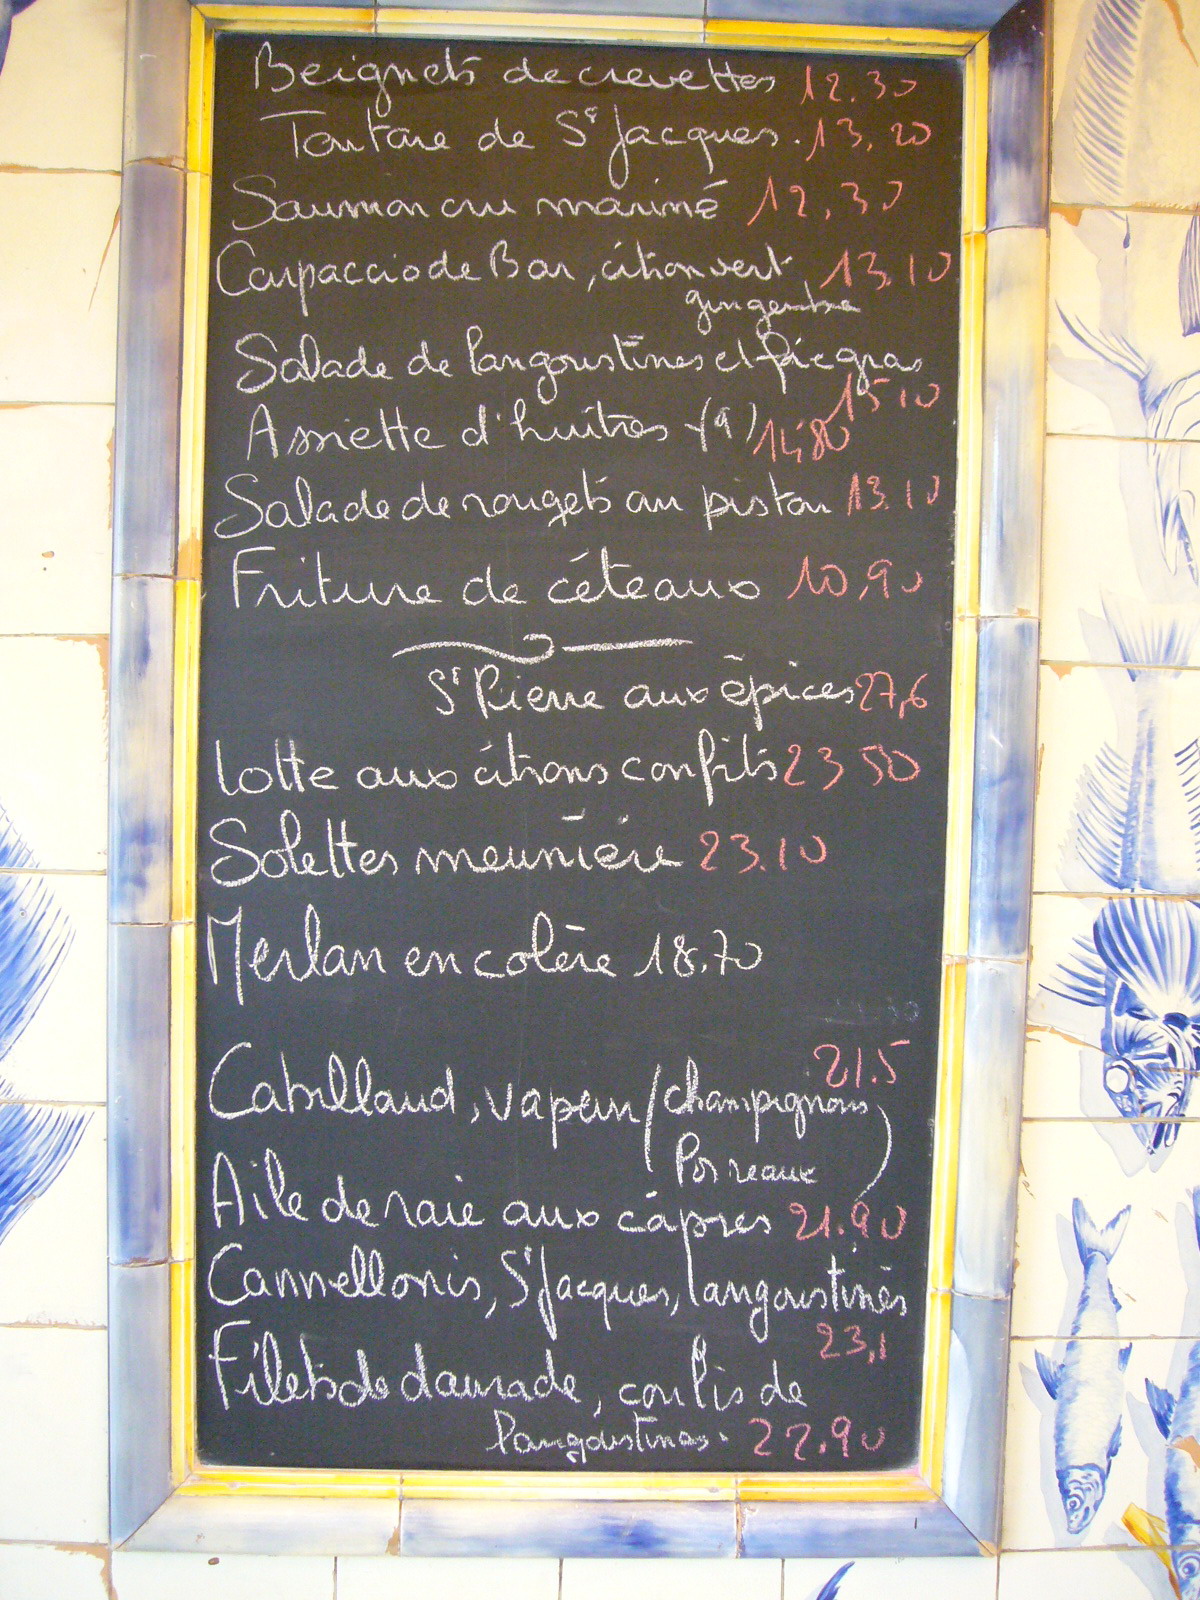 Beignets de crevettes 12.30
Tartare de St Jacques. 13,20
Saumon cru mariné 12,30
Carpaccio de Bar, citron vert 13.10
gingembre
Salade de langoustines et foie gras
15 10
Assiette d'huîtres (9) 14,80
Salade de rougets au pistou 13.10
Friture de céteaux 10,90
St Pierre aux épices 27,6
Lotte aux citrons confits 23 50
Solettes meunière 23.10
Merlan en colère 18.70
21.5
Cabillaud, vapeur (champignons
Poireaux)
Aile de raie aux câpres 21.90
Cannellonis, St Jacques, langoustines
23,1
Filets de daurade, coulis de
langoustines. 22.90